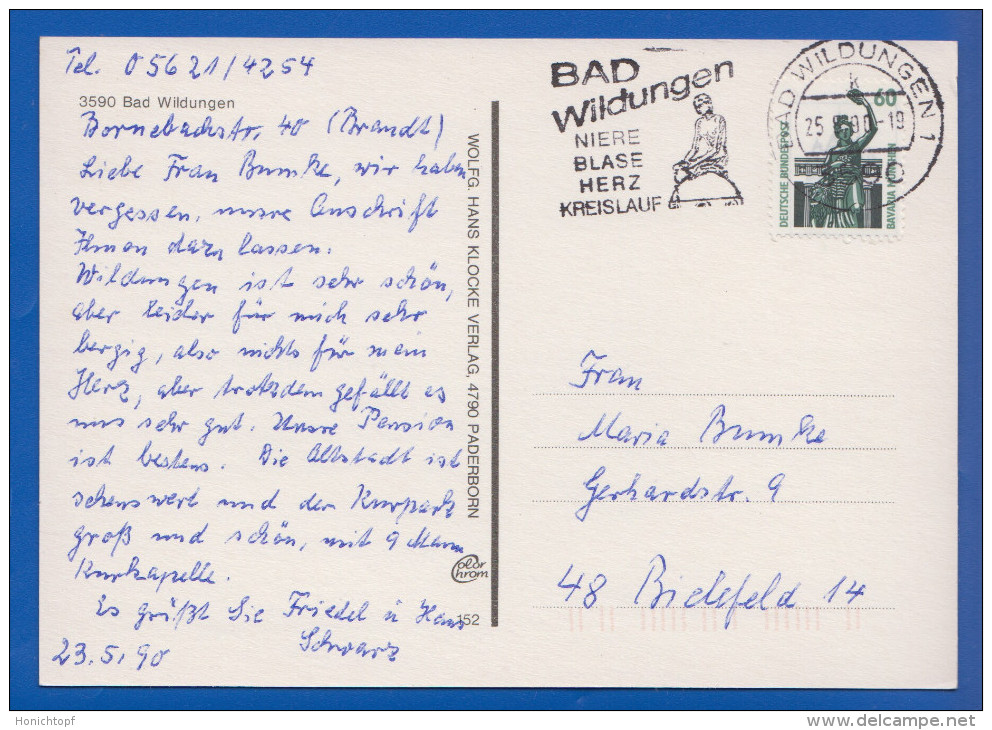 Tel. 05621/4254
3590 Bad Wildungen
Bornebachstr. 40 (Brandt)
Liebe Frau Bumke, wir haben
vergessen, unsre Anschrift
Ihnen dazu lassen.
Wildungen ist sehr schön,
aber leider für mich sehr
bergig, also nichts für mein
Herz, aber trotzdem gefällt es
uns sehr gut. Unsre Pension
ist bestens. Die Altstadt ist
sehenswert und der Kurpark
groß und schön, mit 9 Mann
Kurkapelle.
Es grüßt Sie Friedel u Hans
Schwarz
23.5.90
WOLFG. HANS KLOCKE VERLAG, 4790 PADERBORN
Color
Chrom
152
BAD
Wildungen
NIERE
BLASE
HERZ
KREISLAUF
BAD WILDUNGEN 1
60
DEUTSCHE BUNDESPOST
BAVARIA MÜNCHEN
Frau
Maria Bumke
Gerhardstr. 9
48 Bielefeld 14
Honichtopf
www.delcampe.net